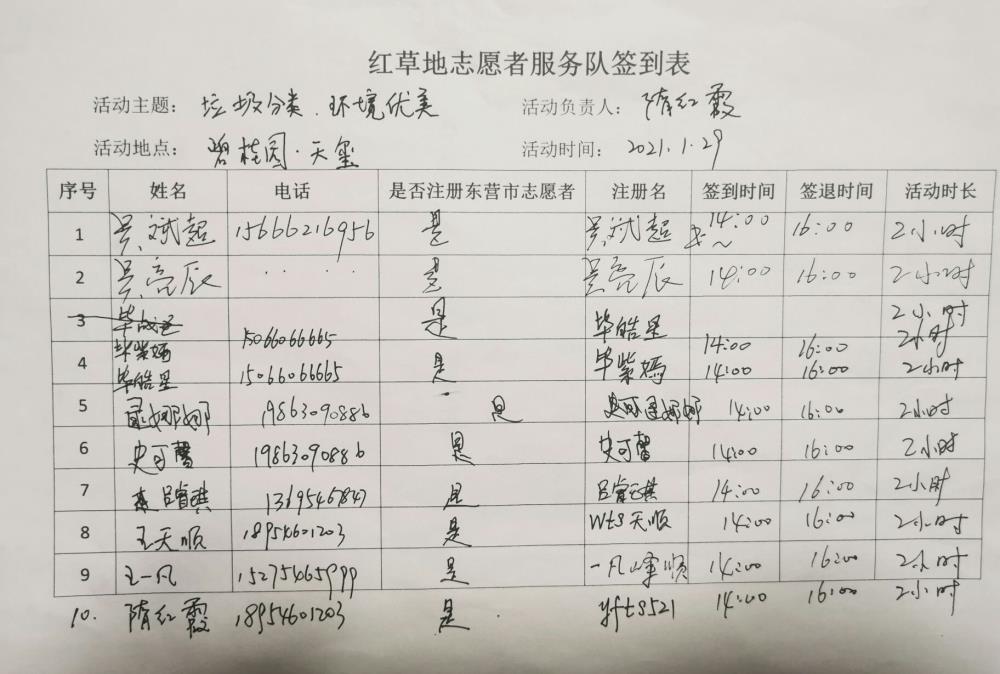 红草地志愿者服务队签到表
活动主题： 垃圾分类.环境优美 活动负责人： 隋红霞
活动地点： 碧桂园·天玺 活动时间： 2021.1.29
序号 姓名 电话 是否注册东营市志愿者 注册名 签到时间 签退时间 活动时长
1 吴斌超 15666216956 是 吴斌超 14:00 16:00 2小时
2 吴亮辰 是 吴亮辰 14:00 16:00 2小时
3 15066066665 是 毕皓星 14:00 16:00 2小时 2小时
毕紫嫣
4 毕皓星 15066066665 是 毕紫嫣 14:00 16:00 2小时
5 娜娜 19863090886 是 娜娜 14:00 16:00 2小时
6 史可馨 19863090886 是 史可馨 14:00 16:00 2小时
7 吕睿琪 是 吕睿琪 14:00 16:00 2小时
8 王天顺 18954601203 是 wts天顺 14:00 16:00 2小时
9 王一凡 15275465999 是 一凡峰顺 14:00 16:00 2小时
10. 隋红霞 18954601203 是 yfts521 14:00 16:00 2小时